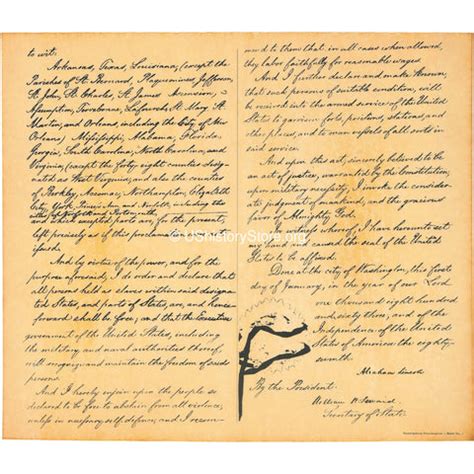 to wit:
Arkansas, Texas, Louisiana, (except the
Parishes of St. Bernard, Plaquemines, Jefferson,
St. John, St. Charles, St. James Ascension,
Assumption, Terrebonne, Lafourche, St. Mary, St.
Martin, and Orleans, including the City of New
Orleans) Mississippi, Alabama, Florida,
Georgia, South Carolina, North Carolina, and
Virginia, (except the forty eight counties desig-
nated as West Virginia, and also the counties
of Berkley, Accomac, Northampton, Elizabeth
City, York, Princess Ann, and Norfolk, including the
cities of Norfolk and Portsmouth
and which excepted parts are, for the present,
left precisely as if this proclamation
issued.
And by virtue of the power, and for the
purpose aforesaid, I do order and declare that
all persons held as slaves within said designated
States, and parts of States, are, and hence-
forward shall be free; and that the Executive
government of the United States, including
the military and naval authorities thereof,
will recognize and maintain the freedom of said
persons.
And I hereby enjoin upon the people so
declared to be free to abstain from all violence,
unless in necessary self-defence; and I
mend to them that in all cases when allowed,
they labor faithfully for reasonable wages.
And I further declare and make known,
that such persons of suitable condition, will
be received into the armed service of the United
States to garrison forts, positions, stations, and
other places, and to man vessels of all sorts in
said service.
And upon this act, sincerely believed to be
an act of justice, warranted by the Constitution,
upon military necessity, I invoke the consider-
ate judgment of mankind, and the gracious
favor of Almighty God.
whereof, I have hereunto set
my hand and caused the seal of the United
States to be affixed.
Done at the city of Washington, this first
day of January, in the year of our Lord
one thousand eight hundred
and sixty three, and of the
Independence of the United
States of America the eighty-
seventh.
Abraham Lincoln
By the President:
William H. Seward
Secretary of State.
© UShistoryStore.org